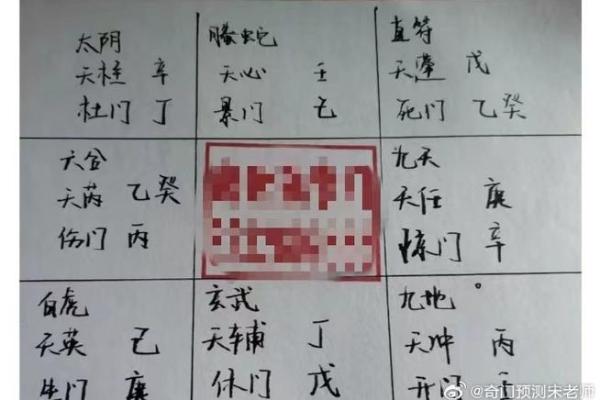 太阴
天柱 辛
杜门 丁
螣蛇
天心 壬
景门 己
直符
天蓬 戊
死门 乙癸
六合
天芮 乙癸
伤门 丙
九天
天任 庚
惊门 辛
白虎
天英 己
生门 庚
玄武
天辅 丁
休门 戊
九地
天冲 丙
开门 壬
@奇门预测宋老师